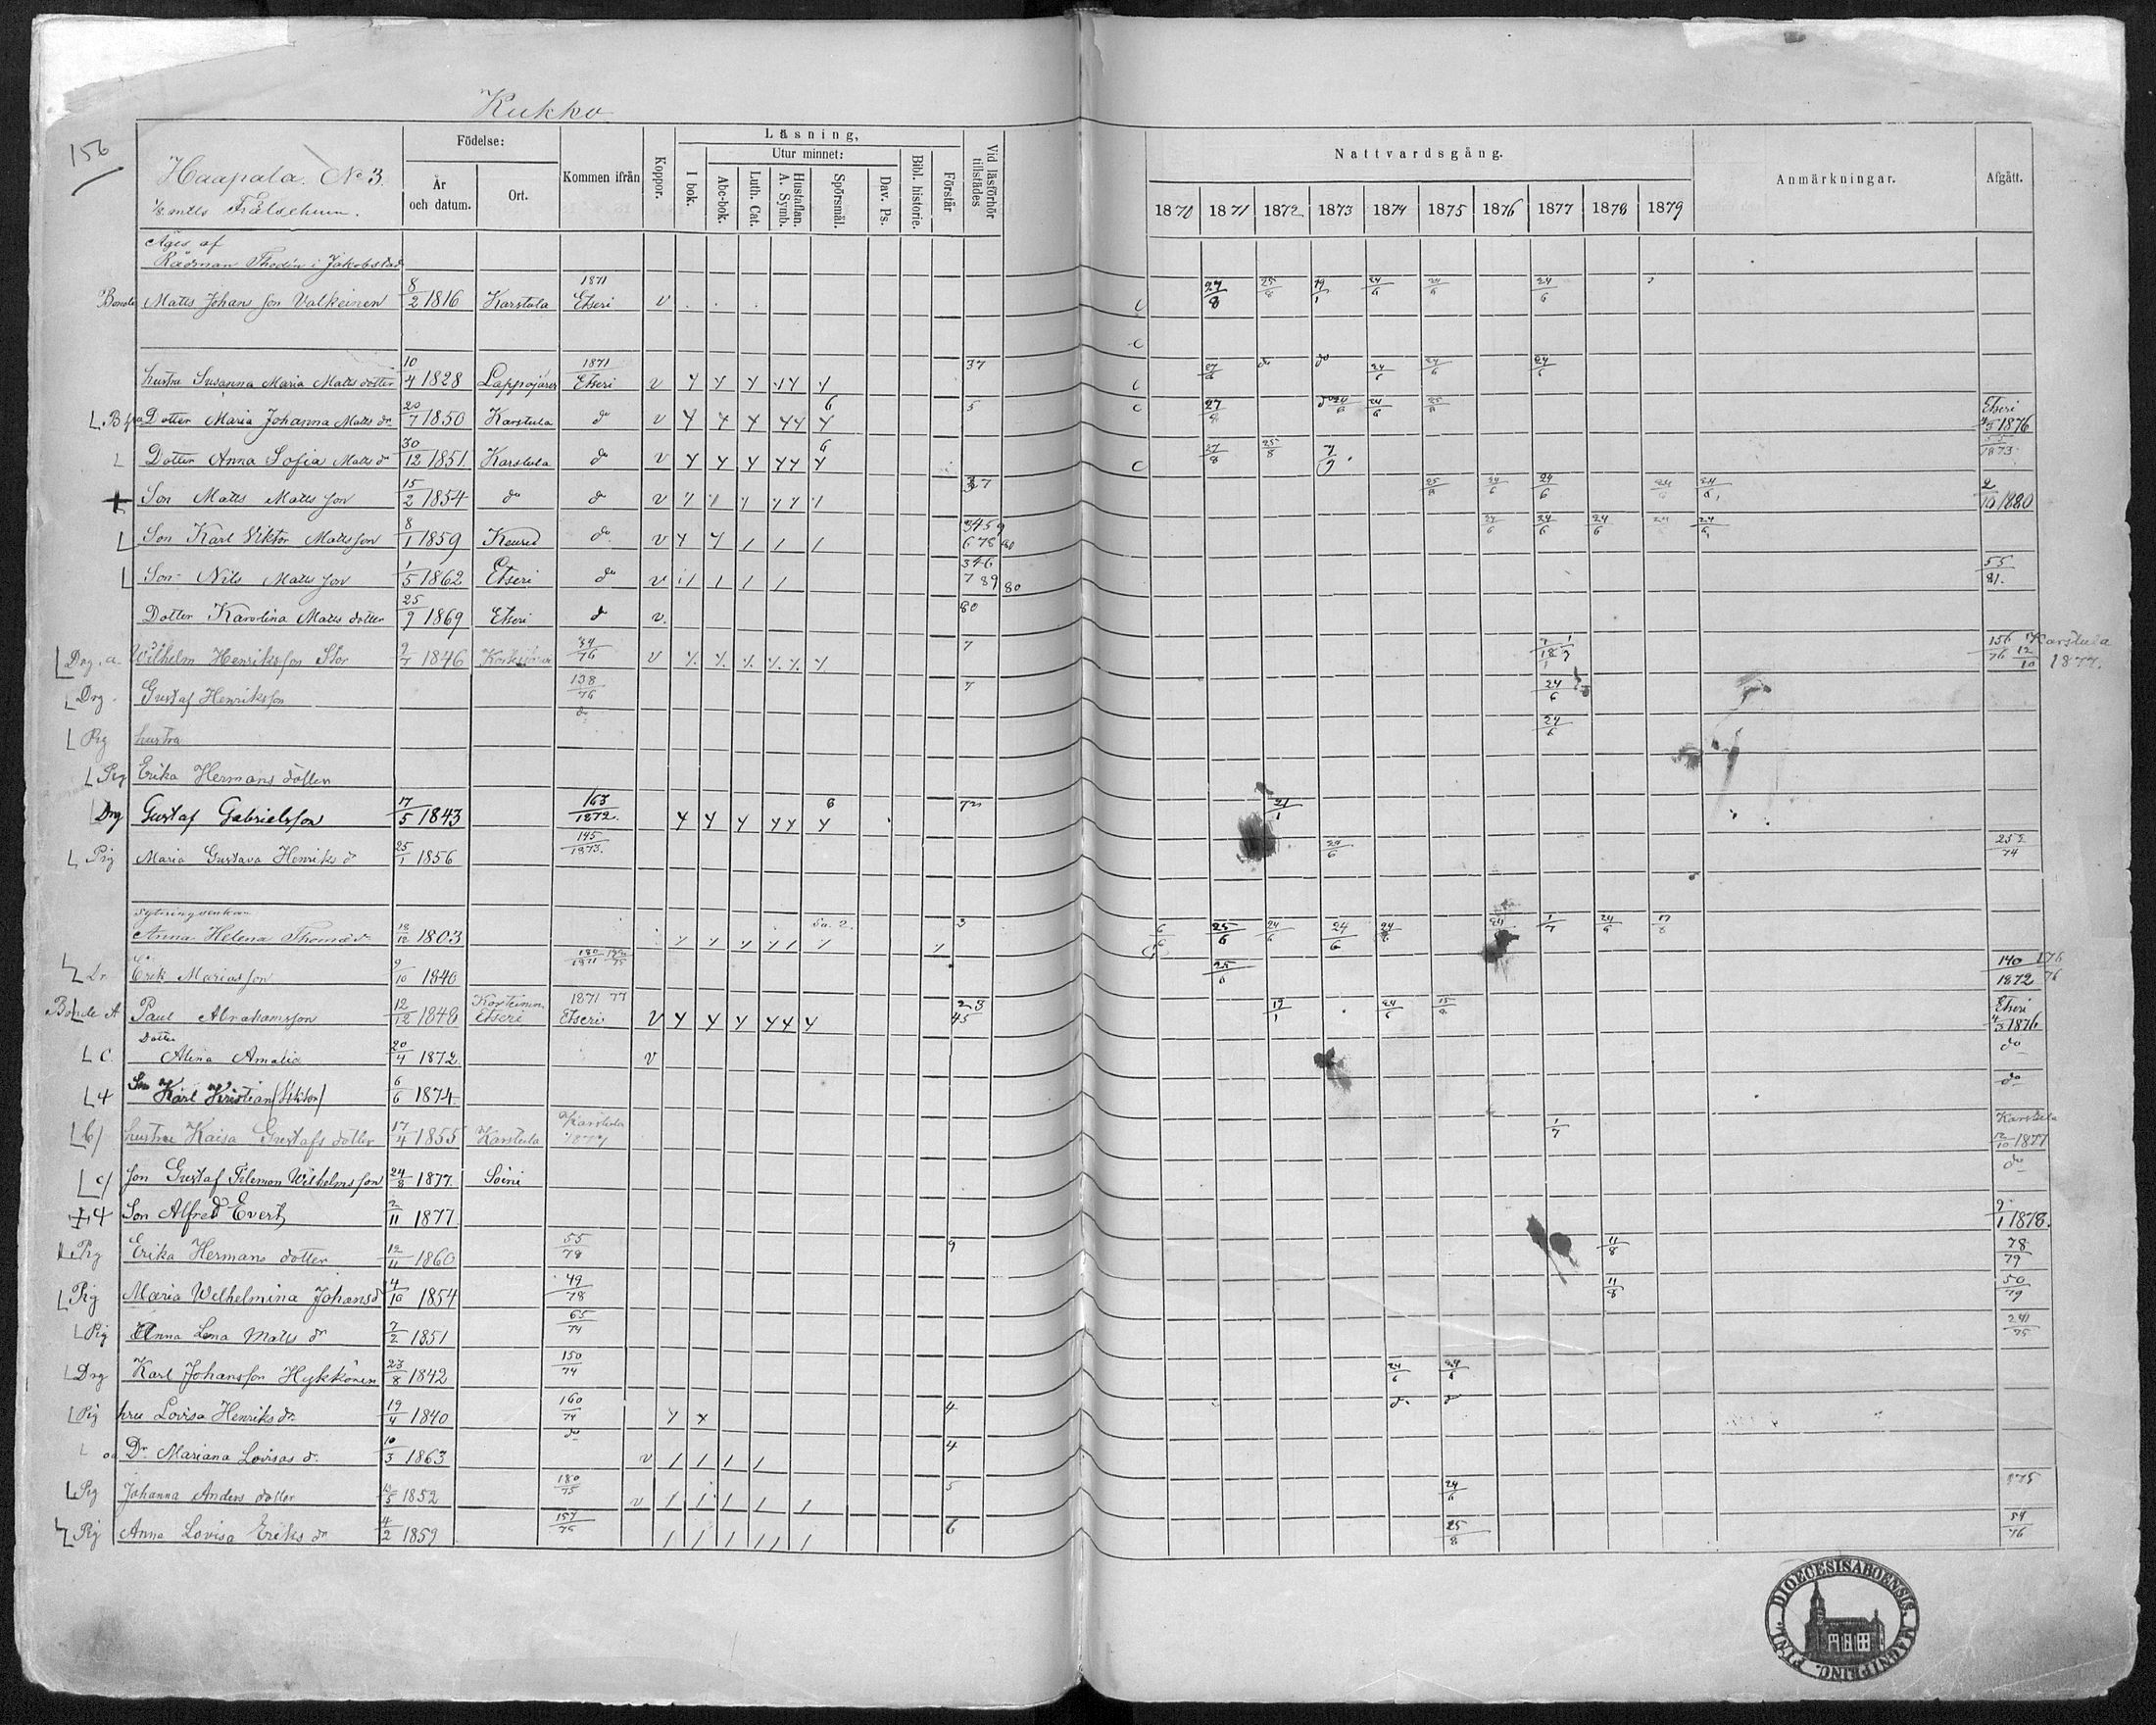 Kukko
156
Haapala. No 3.
Frälsehem.
Födelse:
År och datum.
Ort.
Kommen ifrån
Koppor.
Läsning,
I bok.
Utur minnet:
Abc-bok.
Luth. Cat.
Hustaflan. A. Symb.
Spörsmål.
Dav. Ps.
Bibl. historie.
Förstår
Vid läsförhör tillstädes
Nattvardsgång.
1870 1871 1872 1873 1874 1875 1876 1877 1878 1879
Anmärkningar.
Afgått.
Äges af
Rådman Thodén i Jakobstad
Bonde Matts Johansson Valkeinen 8/2 1816 Karstula 1871 Etseri v 27/8 25/8 19/1 24/6 24/6 24/6
hustru Susanna Maria Matts dotter 10/4 1828 Lappajärvi 1871 Etseri v 37 27/8 do do 24/6 24/6 24/6
Dotter Maria Johanna Matts dr 20/7 1850 Karstula do v 6 5 27/8 24/6 25/8 Etseri 1876
Dotter Anna Sofia Matts d 30/12 1851 Karstula do v 6 27/8 25/8 7/9 55/1873
Son Matts Mattsson 15/2 1854 do do v 37 25/8 24/6 24/6 24/6 24/6 2/10 1880
Son Karl Viktor Mattsson 8/1 1859 Keuru do v 3459 678 80 24/6 24/6 24/6 24 24/6
Son Nils Mattsson 1/5 1862 Etseri do v 346 789 80 55/81.
Dotter Karolina Matts dotter 25/9 1869 Etseri do v. 80
Drg. a. Wilhelm Henriksson Stor 9/7 1846 34/76 v 7 1/7 156/76 12/10 Karstula 1877.
Drg. Gustaf Henriksson 138/76 7 24/6
Pig hustru do 24/6
Pig Erika Hermans dotter
Drg Gustaf Gabrielsson 17/5 1843 163/1872. 6 72 21/1
Pig Maria Gustava Henriks d 25/1 1856 145/1873. 24/6 252/74
Anna Helena Thomæ d 18/12 1803 3 25/6 24/6 24/6 24/6 24/6 1/7 24/6 17/8
Dr. Erik Mariasson 9/10 1840 180/1871 25/6 140/1872 176/76
Bonde A Paul Abrahamsson 12/12 1848 Etseri 1871 77 Etseri v 23 45 19/1 24/6 15/8 Etseri 4/3 1876
Dotter
c. Alina Amalia 20/4 1872 v do
4 Son Karl Kristian (Viktor) 6/6 1874 do
b) hustru Kaisa Gustafs dotter 17/4 1855 Karstula Karstula 1877 1/7 Karstula 12/10 1877
c) son Gustaf Filemon Wilhelmsson 24/8 1877 Soini do
4 Son Alfred Evert 2/11 1877 9/1 1878.
Pig Erika Hermans dotter 12/11 1860 55/78 9 11/8 78/79
Pig Maria Wilhelmina Johansd 4/10 1854 49/78 11/8 50/79
Pig Anna Lena Matts dr 7/2 1851 65/74 241/75
Drg Karl Johansson Hykkönen 23/8 1842 150/74 24/6 24/6
Pig hru Lovisa Henriks dr 19/4 1840 160/74 4 do do
Dr. Mariana Lovisas d. 10/3 1863 do v 4
Pig Johanna Anders dotter 1852 180/75 v 5 24/6 875
Pig Anna Lovisa Eriks dr 4/2 1859 157/75 6 25/8 54/76
DIOECESIS ABOENSIS. MAGNI PRINC. FINL.